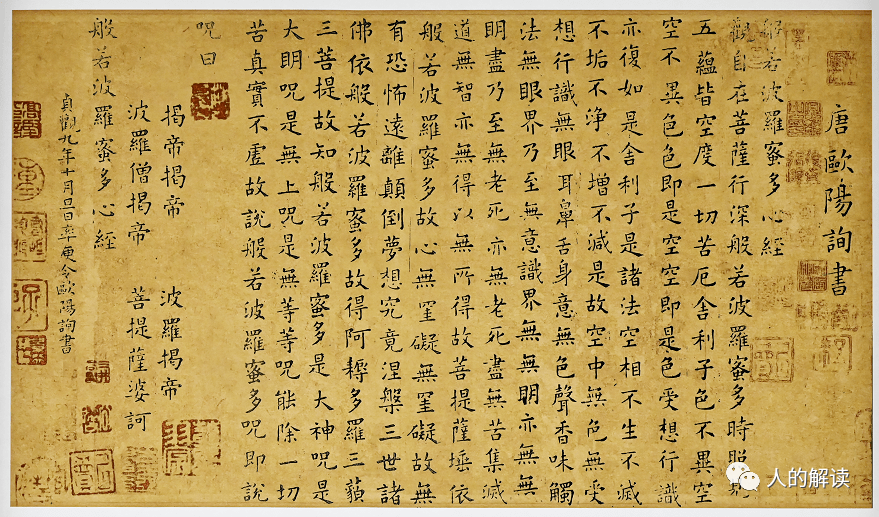 唐歐陽詢書
般若波羅蜜多心經
觀自在菩薩行深般若波羅蜜多時照見
五蘊皆空度一切苦厄舍利子色不異空
空不異色色即是空空即是色受想行識
亦復如是舍利子是諸法空相不生不滅
不垢不淨不增不減是故空中無色無受
想行識無眼耳鼻舌身意無色聲香味觸
法無眼界乃至無意識界無無明亦無無
明盡乃至無老死亦無老死盡無苦集滅
道無智亦無得以無所得故菩提薩埵依
般若波羅蜜多故心無罣礙無罣礙故無
有恐怖遠離顛倒夢想究竟涅槃三世諸
佛依般若波羅蜜多故得阿耨多羅三藐
三菩提故知般若波羅蜜多是大神咒是
大明咒是無上咒是無等等咒能除一切
苦真實不虛故說般若波羅蜜多咒即說
咒曰
揭帝揭帝 波羅揭帝
波羅僧揭帝 菩提薩婆訶
般若波羅蜜多心經
貞觀九年十月旦日率更令歐陽詢書
人的解读